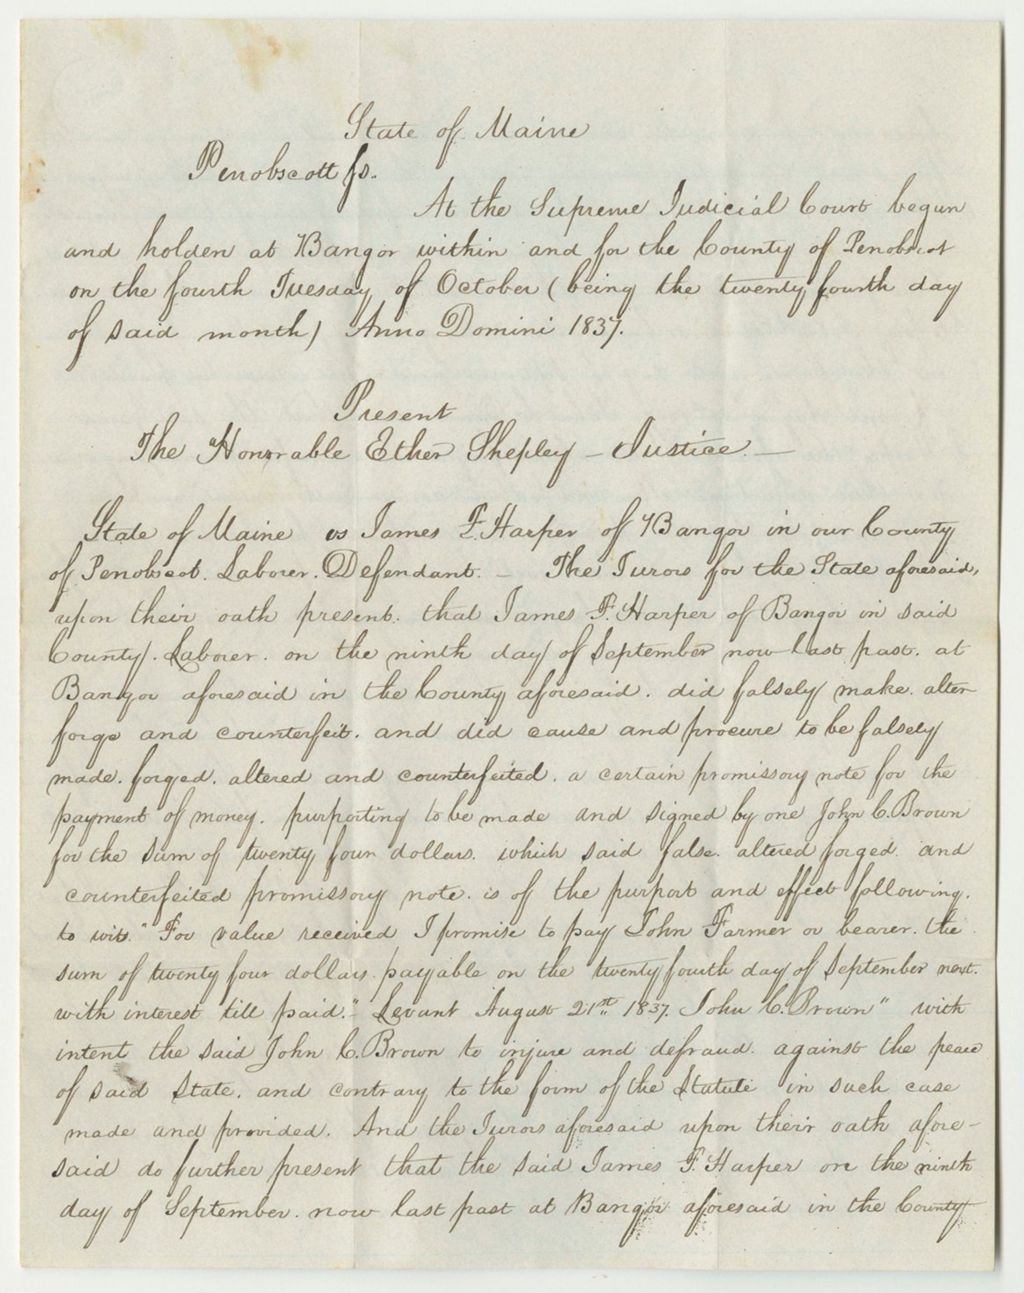 State of Maine
Penobscott ss.
At the Supreme Judicial Court begun
and holden at Bangor within and for the County of Penobscot
on the fourth Tuesday of October (being the twenty fourth day
of said month) Anno Domini 1837.
Present
The Honorable Ether Shepley - Justice. -
State of Maine vs James F. Harper of Bangor in our County
of Penobscot. Laborer. Defendant. - The Jurors for the State aforesaid,
upon their oath present. that James F. Harper of Bangor in said
County. Laborer. on the ninth day of September now last past. at
Bangor aforesaid in the County aforesaid. did falsely make. alter
forge and counterfeit. and did cause and procure to be falsely
made. forged. altered and counterfeited. a certain promissory note for the
payment of money. purporting to be made and signed by one John C. Brown
for the sum of twenty four dollars. which said false. altered forged. and
counterfeited promissory note. is of the purport and effect following.
to wit. "For value received I promise to pay John Farmer or bearer. the
sum of twenty four dollars. payable on the twenty fourth day of September next.
with interest till paid." Levant August 21st. 1837. John C. Brown" with
intent the said John C. Brown to injure and defraud. against the peace
of said State. and contrary to the form of the Statute in such case
made and provided. And the Jurors aforesaid upon their oath afore-
said do further present that the said James F. Harper on the ninth
day of September. now last past at Bangor aforesaid in the County